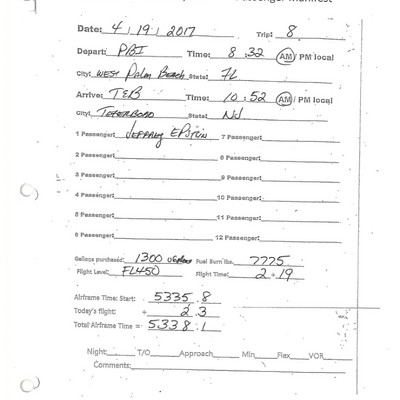 Passenger Manifest
Date: 4/19/2017 Trip: 8
Depart: PBI Time: 8:32 AM/PM local
City: WEST Palm Beach State: FL
Arrive: TEB Time: 10:52 AM/PM local
City: TETERBORO State: NJ
1 Passenger: JEFFREY EPSTEIN 7 Passenger:
2 Passenger: 8 Passenger:
3 Passenger: 9 Passenger:
4 Passenger: 10 Passenger:
5 Passenger: 11 Passenger:
6 Passenger: 12 Passenger:
Gallons purchased: 1300 Fuel Burn lbs. 7775
Flight Level: FL450 Flight Time: 2+19
Airframe Time: Start: 5335.8
Today's flight: + 2.3
Total Airframe Time = 5338.1
Night: T/O Approach Min Flex VOR
Comments: